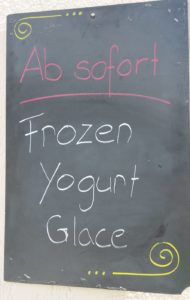 Ab sofort
Frozen
Yogurt
Glace